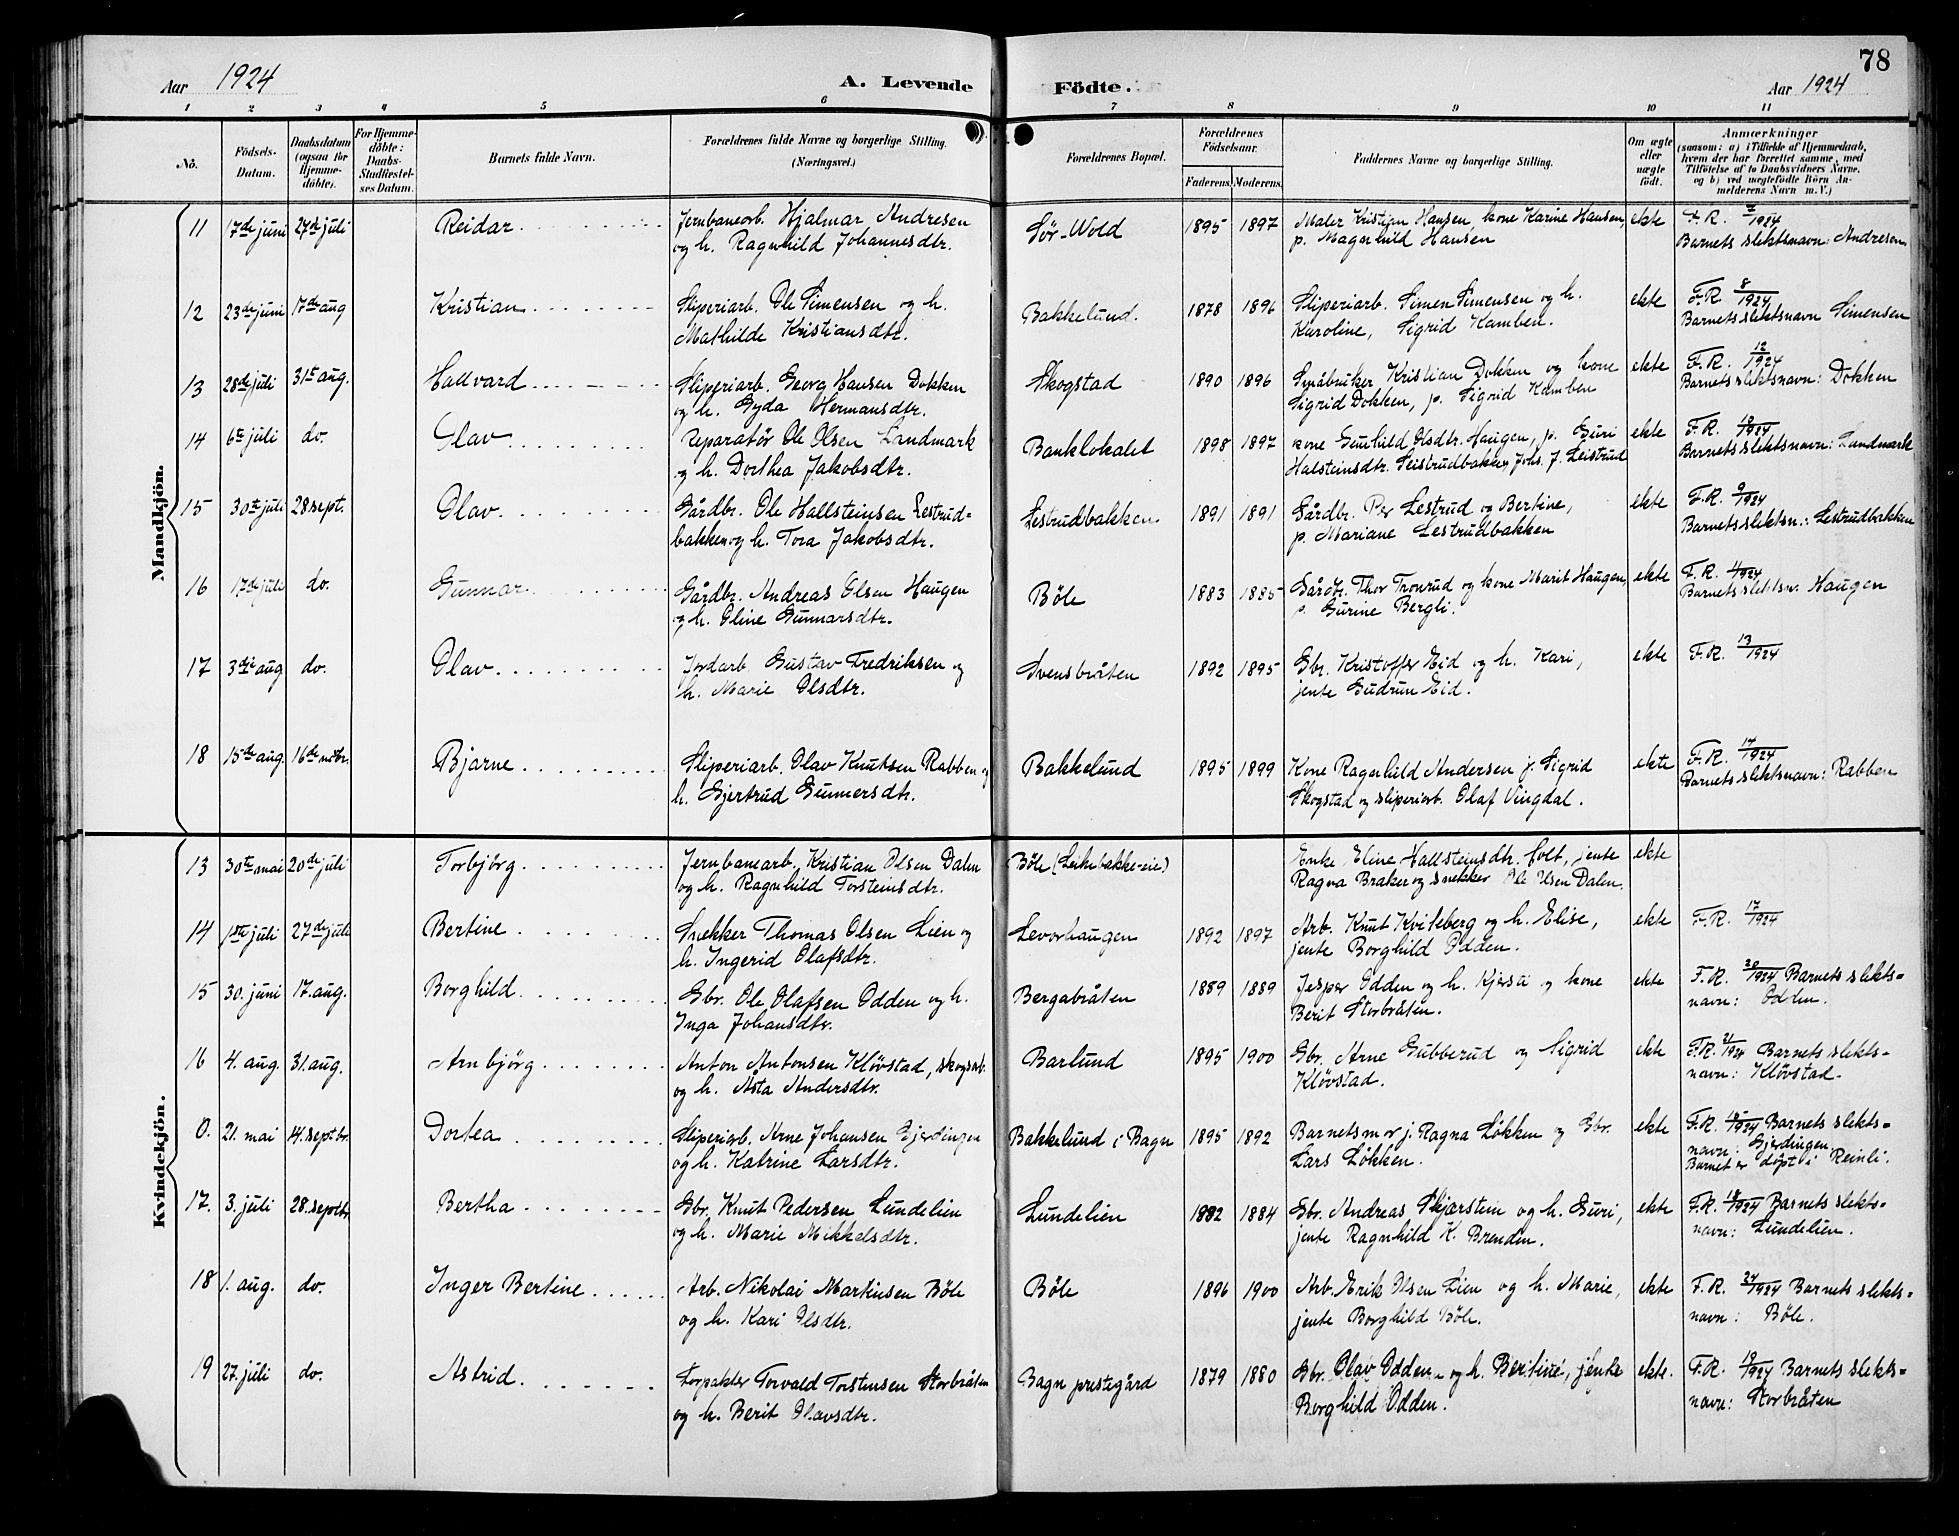 78
Aar 1924 A. Levende Födte. Aar 1924
1 2 3 4 5 6 7 8 9 10 11
No. Födsels-Datum. Daabsdatum (ogsaa for Hjemme-döbte). For Hjemme-döbte: Daabs-Stadfæstel-ses Datum. Barnets fulde Navn. Forældrenes fulde Navne og borgerlige Stilling. (Næringsvei.) Forældrenes Bopæl. Forældrenes Födselsaar. Faderens. Moderens. Faddernes Navne og borgerlige Stilling. Om ægte eller uægte født. Anmærkninger (saasom: a) i Tilfælde af Hjemmedaab, hvem der har forrettet samme, med Tilföielse af to Daabsvidners Navne, og b) ved uægtefödte Börn An-melderens Navn m. V.)
Mandkjön.
11 17de juni 27de juli Reidar Jernbanearb. Hjalmar Andresen Sör-Wold 1895 1897 Maler Kristian Hansen, kone Karine Hansen, ekte F.R. 7/1924
og h. Ragnhild Johannesdtr. p. Magnhild Hansen Barnets slektsnavn: Andresen
12 23de juni 17de aug Kristian Sliperiarb. Ole Simensen og h. Bakkelund. 1878 1896 Sliperiarb. Simen Simensen og h. ekte F.R. 8/1924
Mathilde Kristiansdtr. Karoline, Sigrid Kamben. Barnets slektsnavn Simensen
13 28de juli 31te aug. Hallvard Sliperiarb. Georg Hansen Dokken Skogstad 1890 1896 Småbruker Kristian Dokken og kone ekte F.R. 12/1924
og h. Gyda Hermansdtr. Sigrid Dokken, p. Sigrid Kamben Barnets slektsnavn: Dokken
14 6te juli do. Olav Reparatör Ole Olsen Landmark Banklokalet 1898 1897 kone Gunhild Olsdtr. Haugen, p. Guri ekte F.R. 10/1924
og h. Dorthea Jakobsdtr. Halsteinsdtr. Leistrudbakken Johs. J. Leistrud Barnets slektsnavn: Landmark
15 30te juli 28 sept. Olav Gårdbr. Ole Hallsteinsen Lestrud= Lestrudbakken 1891 1891 Gårdbr. Per Lestrud og Bertine, ekte F.R. 9/1924
bakken og h. Tora Jakobsdtr. p. Mariane Lestrudbakken Barnets slektsn.: Lestrudbakken
16 17de juli do. Gunnar Gårdbr. Andreas Olsen Haugen Böle 1883 1885 Gårdbr. Thor Tronrud og kone Marit Haugen, ekte F.R. 11/1924
og h. Oline Gunnarsdtr. p. Gurine Bergli. Barnets slektsn. Haugen
17 3die aug do. Olav Jordarb. Gustav Fredriksen og Svensbråten 1892 1895 Gbr. Kristoffer Eid og h. Kari, ekte F.R. 13/1924
h. Marie Olsdtr. jente Gudrun Eid.
18 15de aug. 16de nobr. Bjarne Sliperiarb. Olav Knutsen Rabben og Bakkelund 1895 1899 Kone Ragnhild Andersen j. Sigrid ekte F.R. 17/1924
h. Gjertrud Gunnersdtr. Skogstad og sliperiarb. Olaf Vingdal. Barnets slektsnavn: Rabben
Kvindekjön.
13 30te mai 20de juli Torbjörg Jernbanearb. Kristian Olsen Dalen Böle (Leikebakke-eie) Enke Eline Hallsteinsdtr. folt, jente ekte
og h. Ragnhild Torsteinsdtr. Ragna Braker og snekker Ole Olsen Dalen.
14 1ste juli 27de juli Bertine Snekker Thomas Olsen Lien og Levorhaugen 1892 1897 Arb. Knut Kviteberg og h. Elise, ekte F.R. 17/1924
h. Ingerid Olafsdtr. jente Borghild Odden.
15 30. juni 17. aug. Borghild Gbr. Ole Olafsen Odden og h. Bergabråten 1889 1889 Jesper Odden og h. Kjersti og kone ekte F.R. 20/1924 Barnets slekts=
Inga Johansdtr. Berit Storbråten. navn: Odden.
16 4. aug. 31. aug. Arnbjörg Anton Antonsen Klövstad, skogsarb. Barlund 1895 1900 Gbr. Arne Gubberud og Sigrid ekte F.R. 21/1924 Barnets slekts=
og h. Åsta Andersdtr. Klövstad. navn: Klövstad.
0. 21. mai 14. septbr. Dortea Sliperiarb. Arne Johansen Gjerdingen Bakkelund i Bagn 1895 1892 Barnets mor j. Ragna Lökken og Gbr. ekte F.R. 18/1924 Barnets slekts=
og h. Katrine Larsdtr. Lars Lökken. navn: Gjerdingen.
Barnet er döpt i Reinli.
17. 3. juli 28. septbr Bertha Gbr. Knut Pedersen Lundelien Lundelien 1882 1884 Gbr. Andreas Skjærstein og h. Guri, ekte F.R. 18/1924 Barnets slekts=
og h. Marie Mikkelsdtr. jente Ragnhild K. Brenden. navn: Lundelien.
18 1. aug. do. Inger Bertine Arb. Nikolai Martinsen Böle Böle 1896 1900 Arb. Erik Olsen Lien og h. Marie, ekte F.R. 24/1924 Barnets slekts=
og h. Kari Olsdtr. jente Borghild Böle. navn: Böle.
19 27. juli do. Astrid Forpakter Torvald Torstensen Storbråten Bagn prestegård 1879 1880 Gbr. Olav Odden og h. Bertine, jente ekte. F.R. 19/1924 Barnets slekts=
og h. Berit Olavsdtr. Borghild Odden. navn: Storbråten